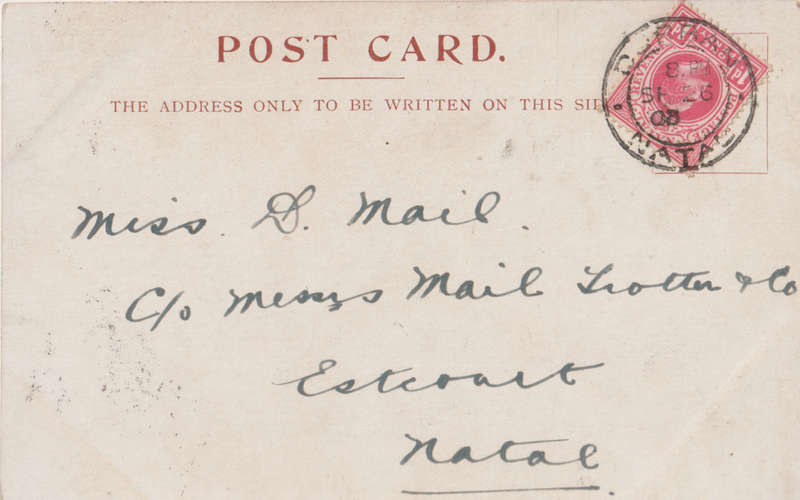 POST CARD.
THE ADDRESS ONLY TO BE WRITTEN ON THIS
DURBAN
8. PM
SP 26
NATAL
Miss. D. Mail.
C/o Messrs Mail Trotter & Co
Estcourt
Natal